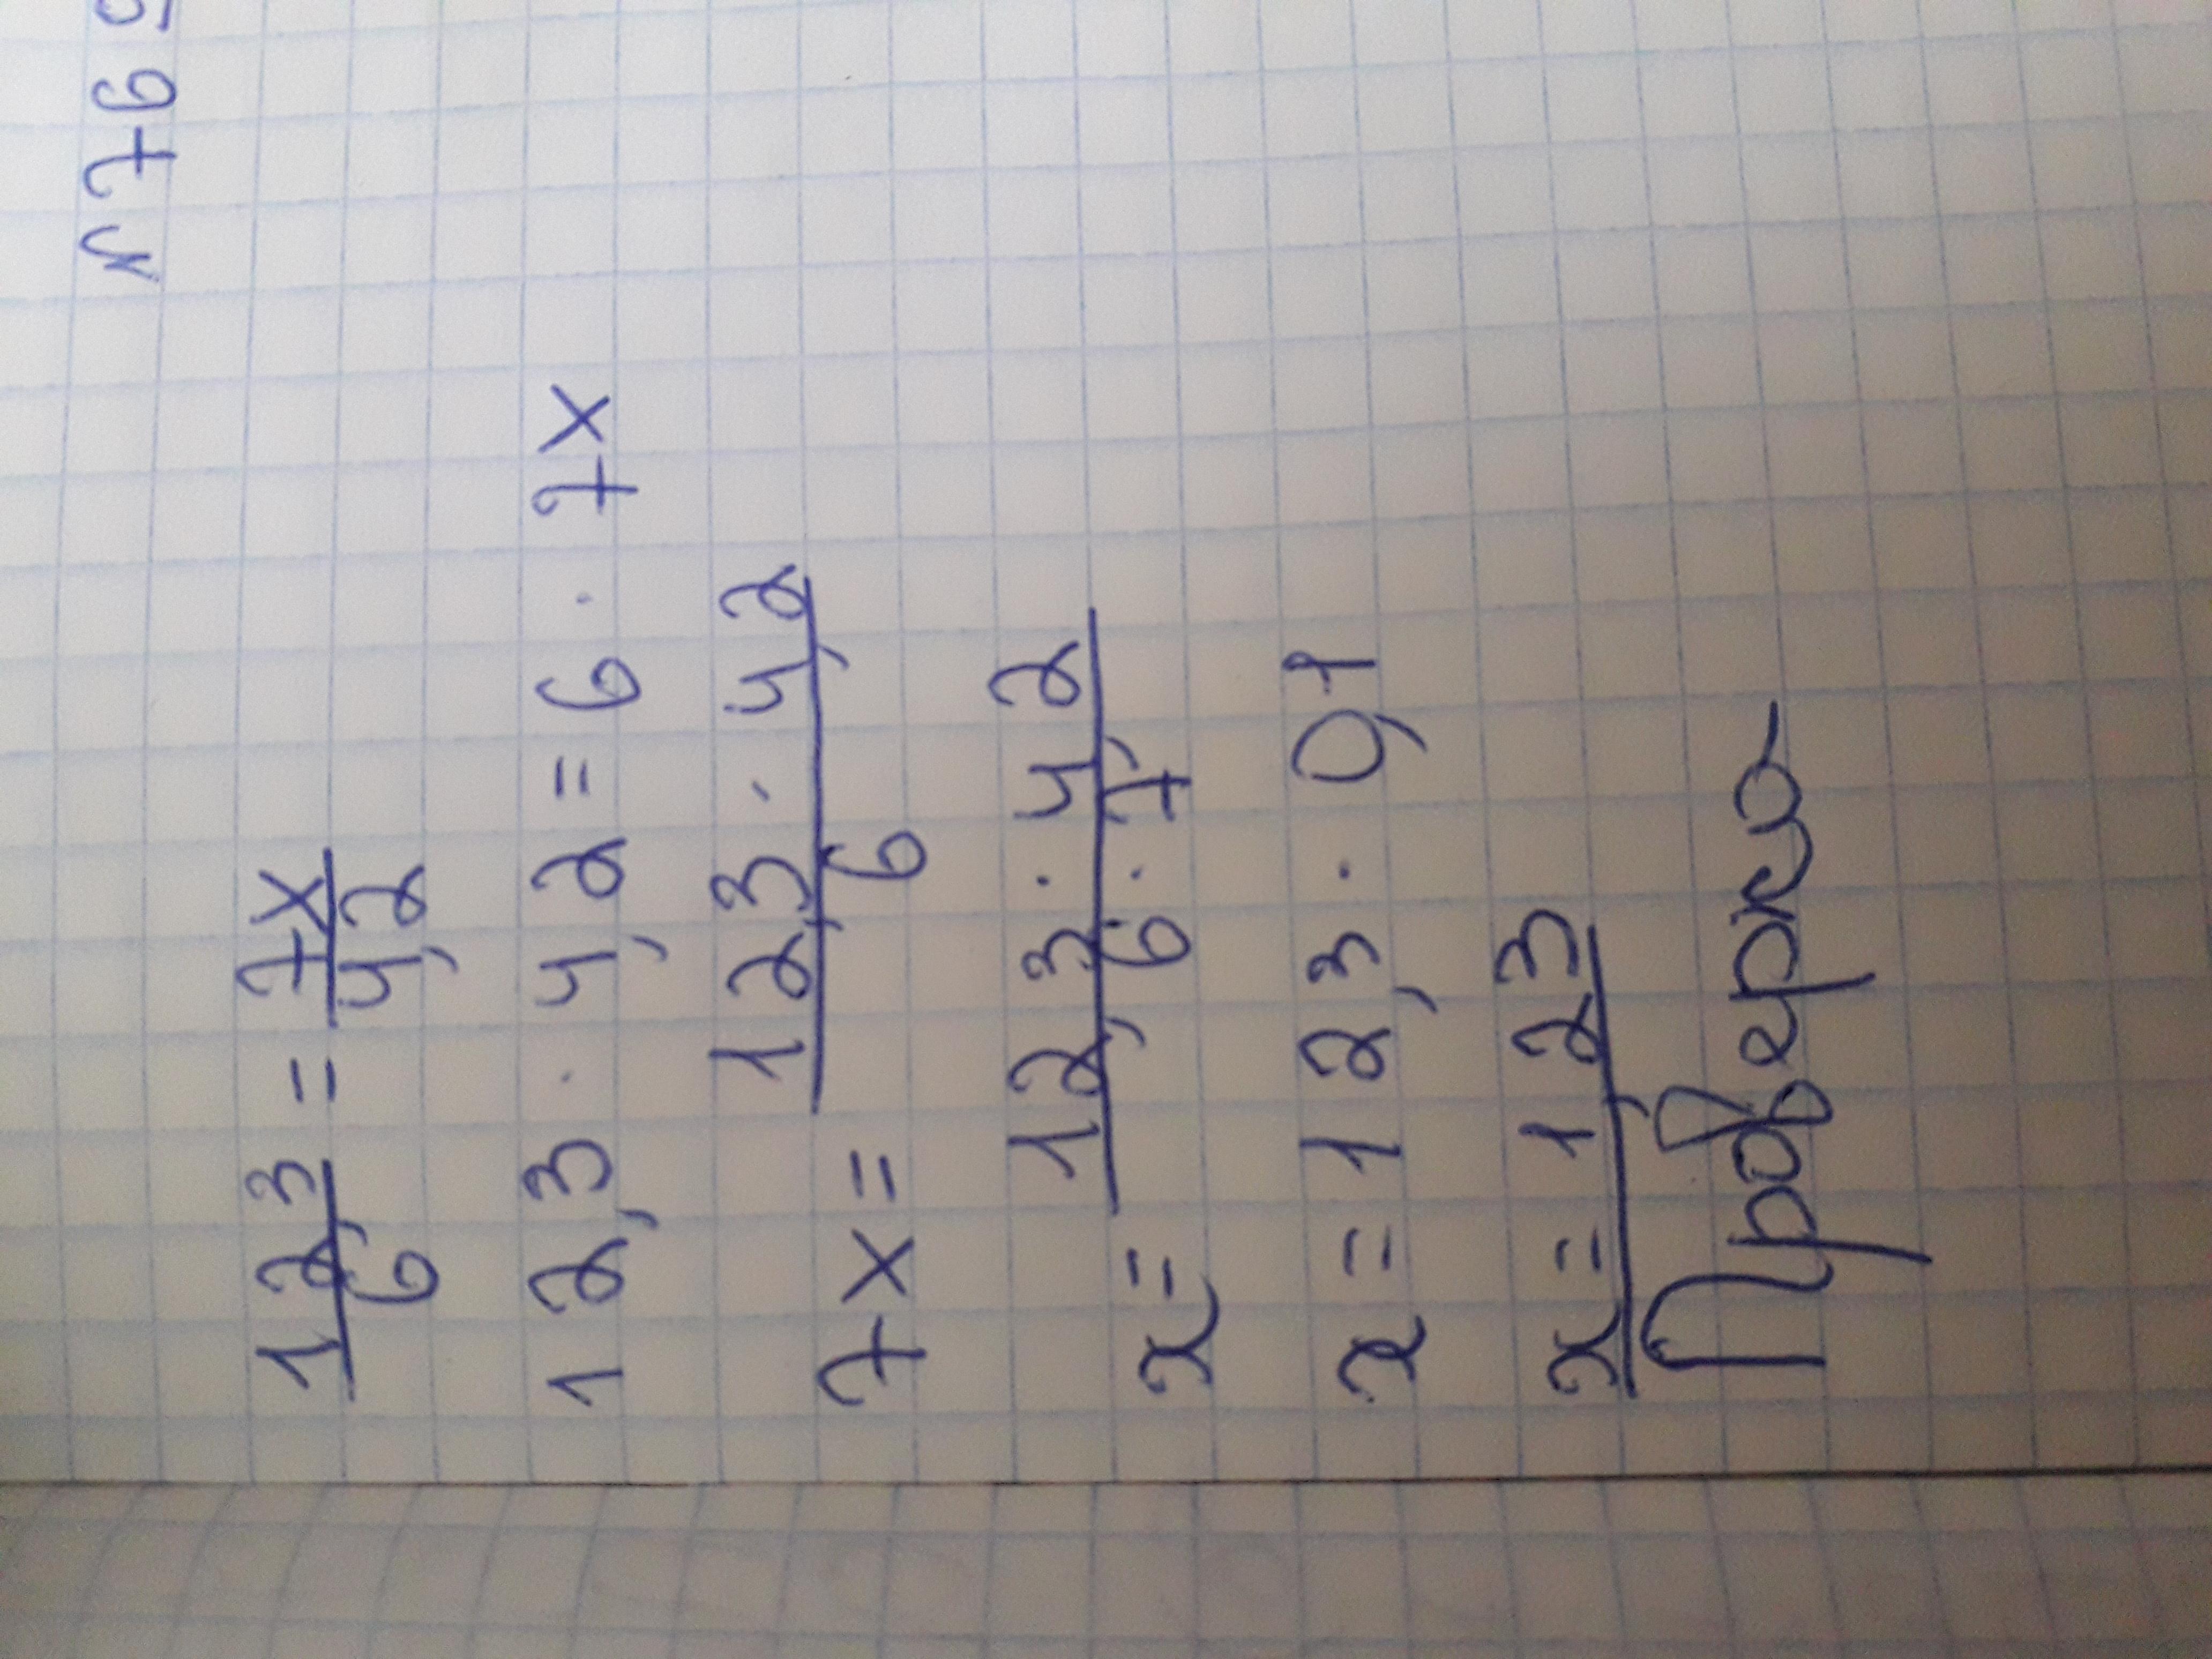 N 795
12,3/6 = 7x/4,2
12,3 · 4,2 = 6 · 7x
7x = 12,3 · 4,2/6
x = 12,3 · 4,2/6 · 7
x = 12,3 · 0,1
x = 1,23
Проверка